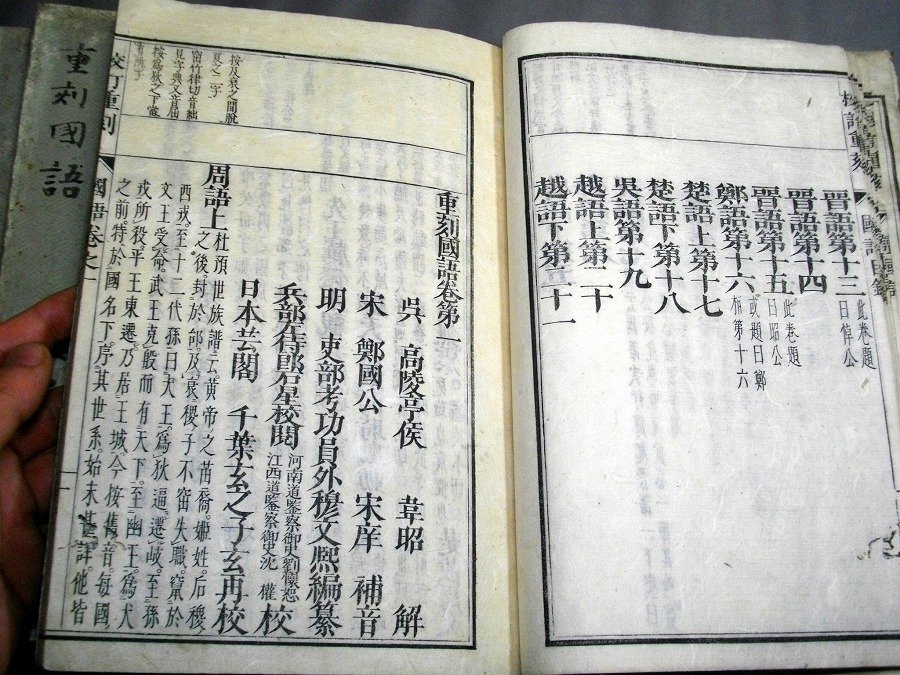 校訂重刻
國語
晉語第十三
此卷題
曰悼公
晉語第十四
晉語第十五
此卷題
曰昭公
鄭語第十六
或題曰鄭
相第十六
楚語上第十七
楚語下第十八
吳語第十九
越語上第二十
越語下第二十一
重刻國語卷第一
吳 高陵亭侯 韋昭 解
宋 鄭國公 宋庠 補音
明 吏部考功員外穆文熙編纂
兵部左侍郎石星校閱
河南道監察御史劉懷恕
江西道監察御史沈 權
校
日本芸閣 千葉玄之子玄再校
周語上
杜預世族譜云黃帝之苗裔姬姓后稷
之後封於邰及衰稷子不窋失職竄於
西戎至十二代孫曰大王為狄逼遷岐至孫
文王受命武王克殷而有天下至幽王為犬
戎所殺平王東遷乃居王城今按舊音每國
之前特於國名下序其世系始末甚詳他皆
按及衰之間脫
夏之二字
窋竹律切音絀
校訂重刻
國語卷之一
重刻國語